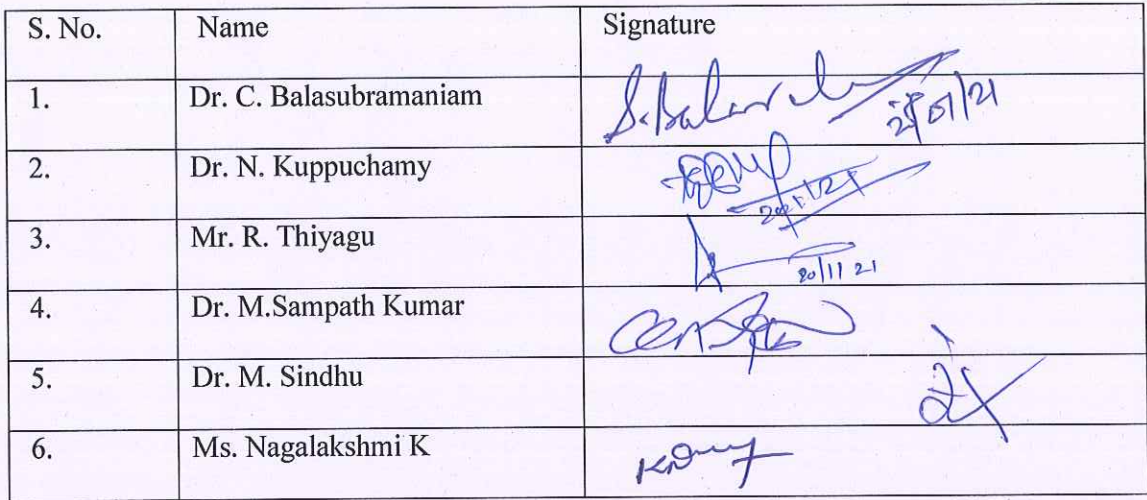 S. No. Name Signature
1. Dr. C. Balasubramaniam
2. Dr. N. Kuppuchamy
3. Mr. R. Thiyagu
20/11 21
4. Dr. M.Sampath Kumar
5. Dr. M. Sindhu
6. Ms. Nagalakshmi K